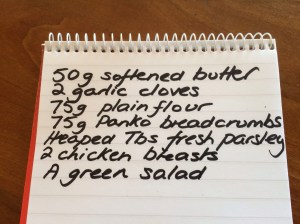 50g softened butter
2 garlic cloves
75g plain flour
75g Panko breadcrumbs
Heaped Tbs fresh parsley
2 chicken breasts
A green salad